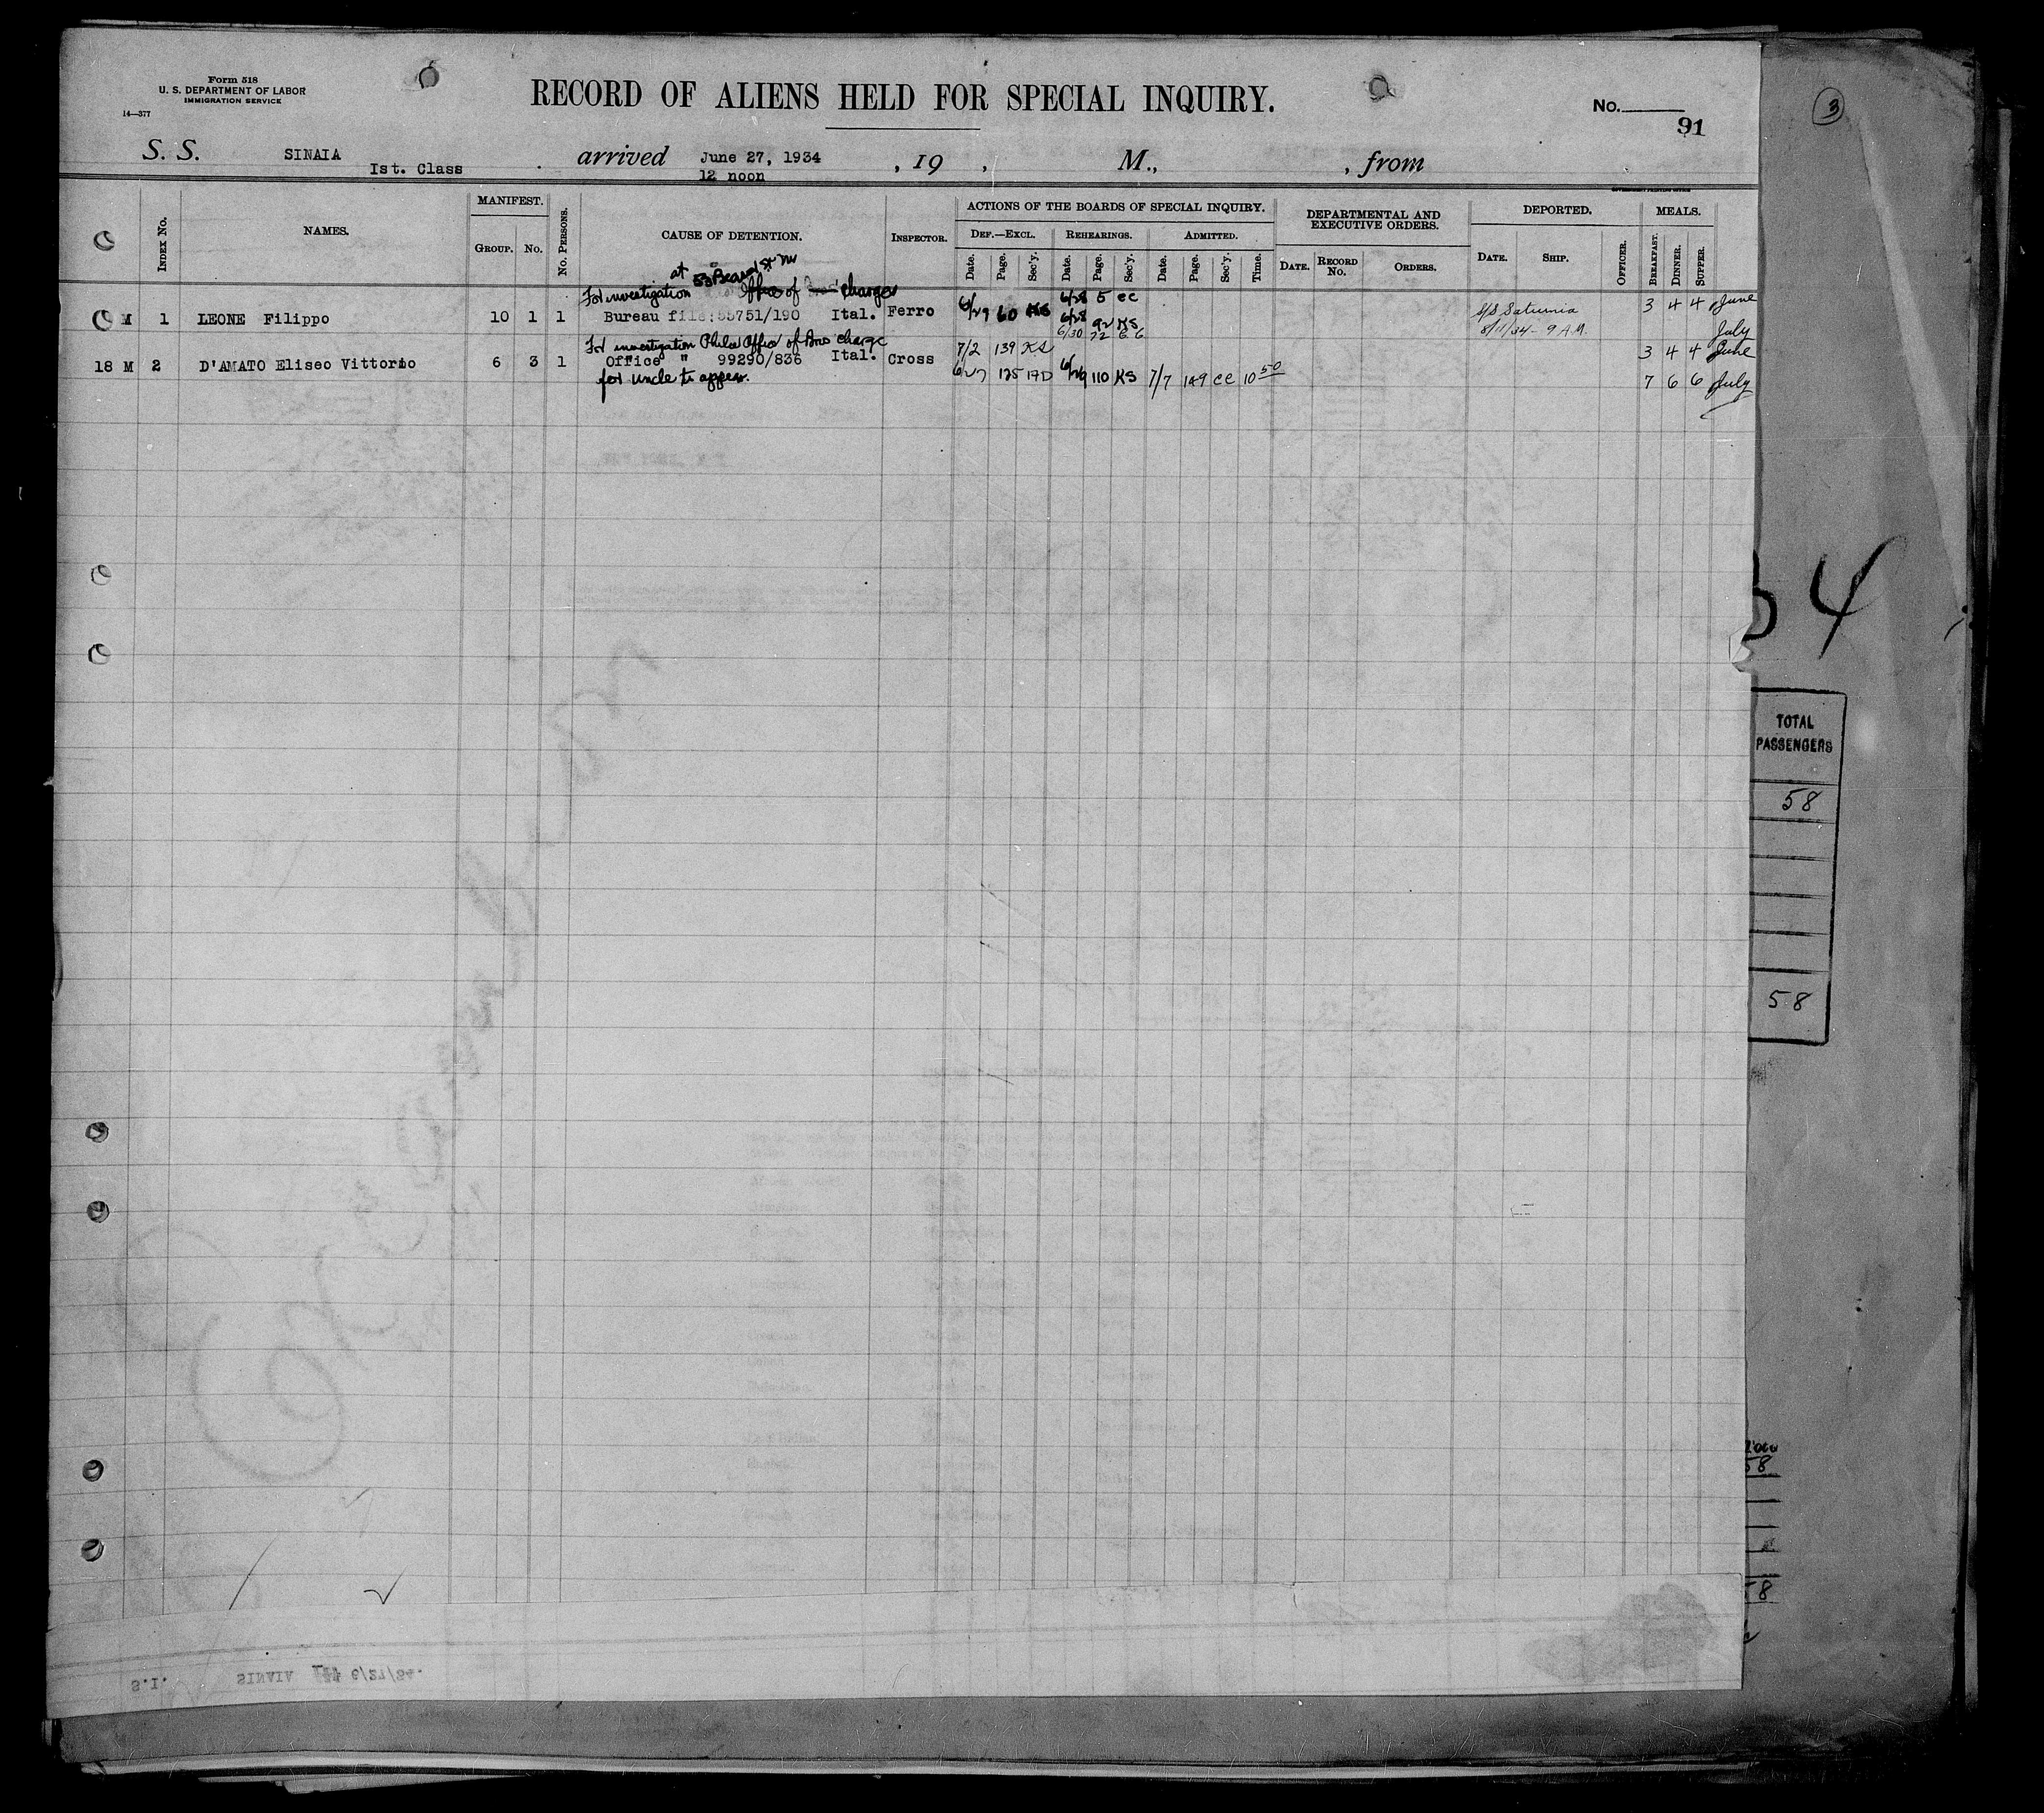 Form 518
U. S. DEPARTMENT OF LABOR
IMMIGRATION SERVICE
14—377
RECORD OF ALIENS HELD FOR SPECIAL INQUIRY.
No.
91
3
S. S. SINAIA arrived June 27, 1934 , 19 , M., , from
Ist. Class 12 noon
GOVERNMENT PRINTING OFFICE
INDEX No. NAMES. MANIFEST. GROUP. No. No. PERSONS. CAUSE OF DETENTION. INSPECTOR.
ACTIONS OF THE BOARDS OF SPECIAL INQUIRY.
DEF.—EXCL. REHEARINGS. ADMITTED.
Date. Page. Sec'y. Date. Page. Sec'y. Date. Page. Sec'y. Time.
DEPARTMENTAL AND EXECUTIVE ORDERS.
DATE. RECORD No. ORDERS.
DEPORTED.
DATE. SHIP. OFFICER.
MEALS.
BREAKFAST. DINNER. SUPPER.
at 53 Beard St
For investigation Office of charges
6/28 5 CC
M 1 LEONE Filippo 10 1 1 Bureau file:55751/190 Ital. Ferro 6/27 60 KS 6/28 92 KS S/S Saturnia 3 4 4 June
6/30 72 8/11/34 - 9 A.M. July
For investigation Phila Office of charge
7/2 139 KS
18 M 2 D'AMATO Eliseo Vittorio 6 3 1 Office " 99290/836 Ital. Cross 3 4 4 June
for uncle to appear. 6/27 125 6/29 110 KS 7/7 149 CC 10 50 7 6 6 July
34
TOTAL
PASSENGERS
58
58
58
S.I. SINAIA 6/27/34.